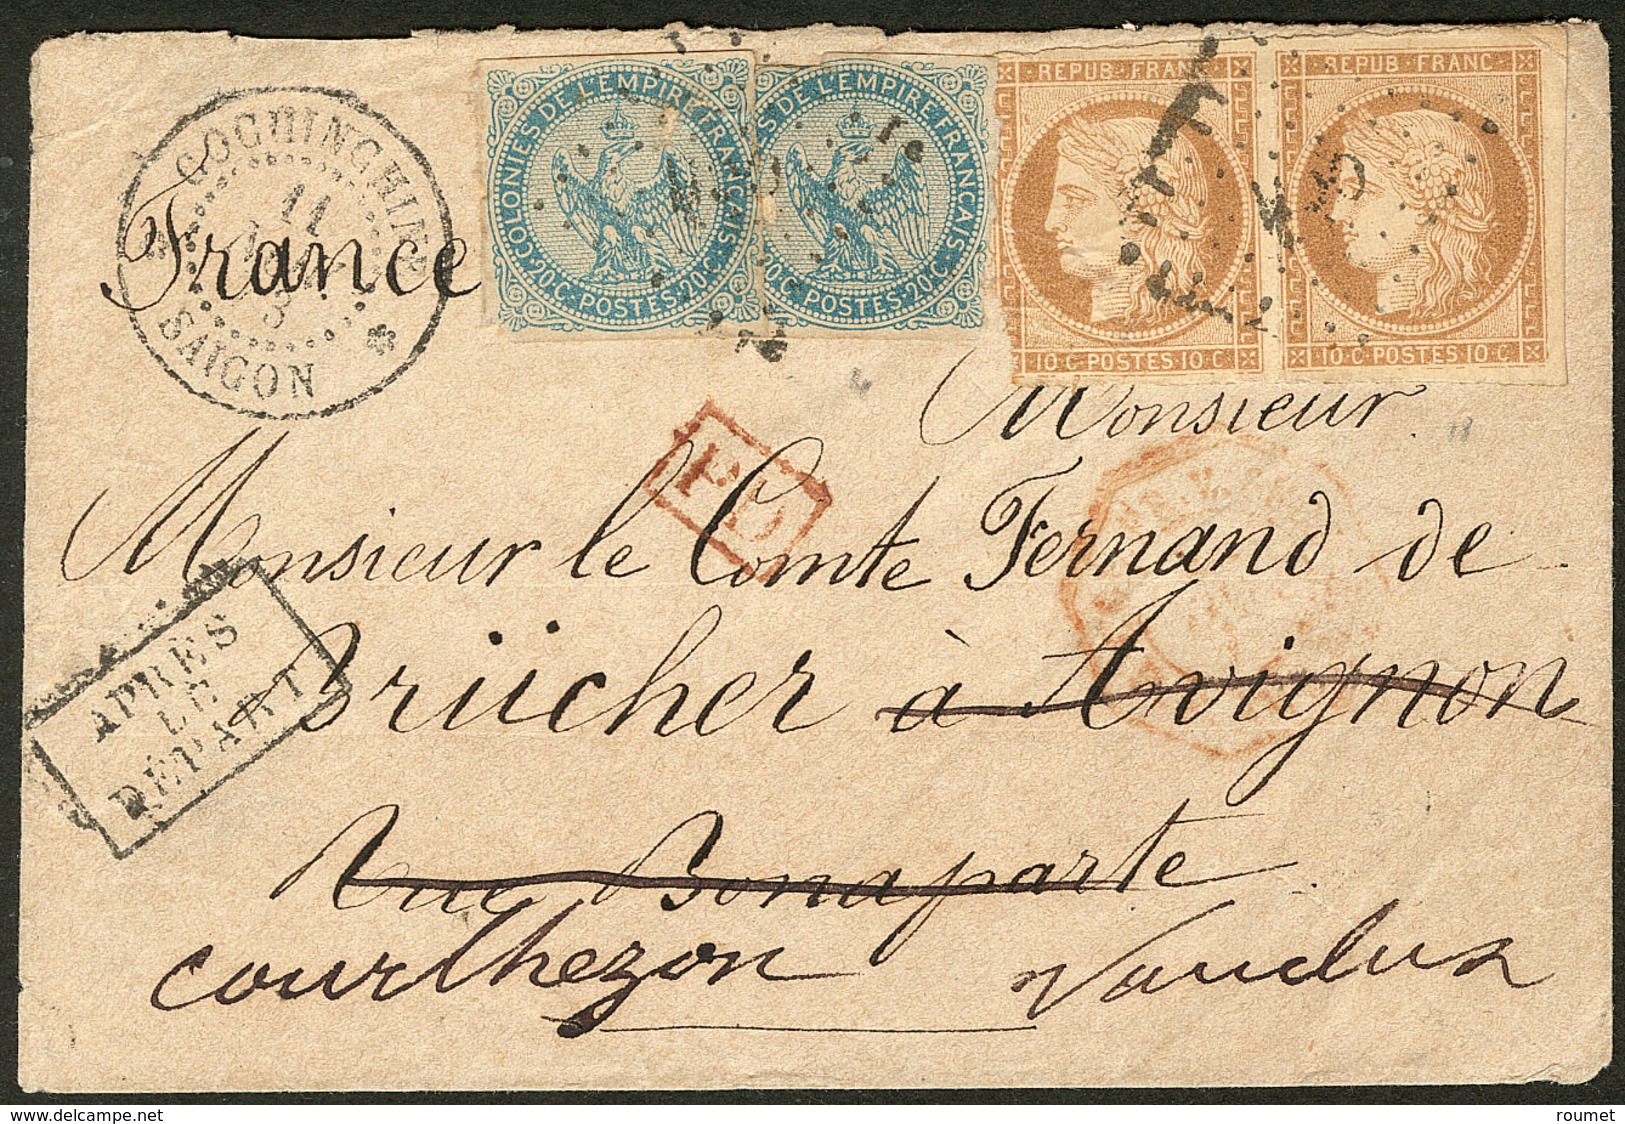 COCHINCHINE
11
SAIGON
France
COLONIES DE L'EMPIRE FRANÇAIS
20 C. POSTES. 20 C.
S DE L'EMPIRE FRANÇAIS
20 C. POSTES. 20 C.
REPUB. FRANC.
10. C. POSTES. 10. C.
REPUB. FRANC.
10. C. POSTES. 10. C.
Monsieur
PD
Monsieur le Comte Fernand de
Brücher à Avignon
APRÈS
LE
DÉPART
Rue Bonaparte
Courthezon Vaucluse
delcampe.net
roumet